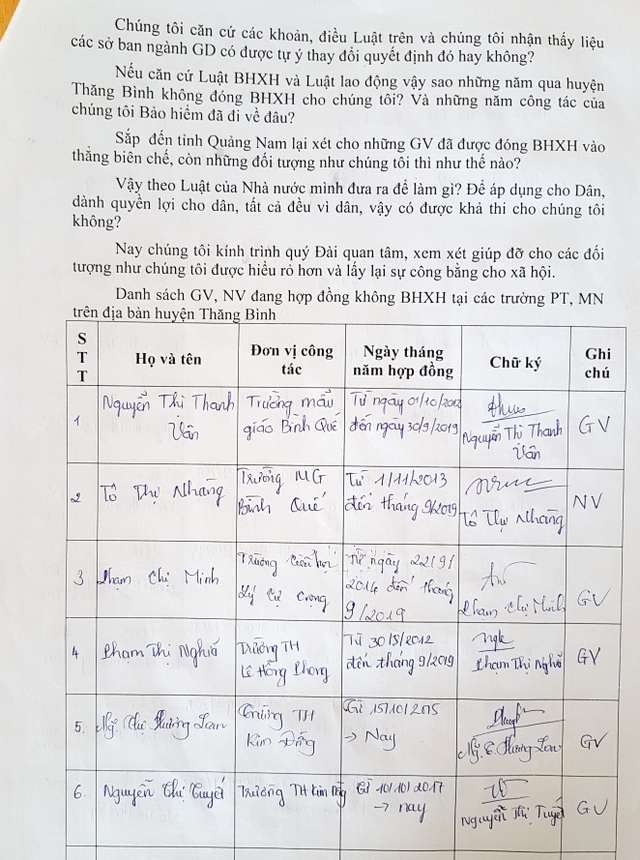 Chúng tôi căn cứ các khoản, điều Luật trên và chúng tôi nhận thấy liệu
các sở ban ngành GD có được tự ý thay đổi quyết định đó hay không?
Nếu căn cứ Luật BHXH và Luật lao động vậy sao những năm qua huyện
Thăng Bình không đóng BHXH cho chúng tôi? Và những năm công tác của
chúng tôi Bảo hiểm đã đi về đâu?
Sắp đến tỉnh Quảng Nam lại xét cho những GV đã được đóng BHXH vào
thẳng biên chế, còn những đối tượng như chúng tôi thì như thế nào?
Vậy theo Luật của Nhà nước mình đưa ra để làm gì? Để áp dụng cho Dân,
dành quyền lợi cho dân, tất cả đều vì dân, vậy có được khả thi cho chúng tôi
không?
Nay chúng tôi kính trình quý Đài quan tâm, xem xét giúp đỡ cho các đối
tượng như chúng tôi được hiểu rỏ hơn và lấy lại sự công bằng cho xã hội.
Danh sách GV, NV đang hợp đồng không BHXH tại các trường PT, MN
trên địa bàn huyện Thăng Bình
S
T
T
Họ và tên
Đơn vị công
tác
Ngày tháng
năm hợp đồng
Chữ ký
Ghi
chú
1
Nguyễn Thị Thanh
Vân
Trường mẫu
giáo Bình Quế
Từ ngày 01/10/2012
đến ngày 30/9/2019
Nguyễn Thị Thanh
Vân
GV
2
Tô Thị Nhàng
Trường MG
Bình Quế
Từ 1/11/2013
đến tháng 9/2019
Tô Thị Nhàng
NV
3
Phạm Chị Minh
Trường
Lý Tự Trọng
Từ ngày 22/9/
2014 đến tháng
9/2019
Phạm Chị Minh
GV
4
Phạm Thị Nghĩa
Trường TH
Lê Hồng Phong
Từ 30/5/2012
đến tháng 9/2019
Phạm Thị Nghĩa
GV
5.
Ng. Thị Hương Lan
Trường TH
Kim Đồng
Từ 15/10/2015
→ Nay
Ng. T. Hương Lan
GV
6.
Nguyễn Thị Tuyết
Trường TH Kim Đồng
Từ 10/10/2017
→ nay
Nguyễn Thị Tuyết
GV